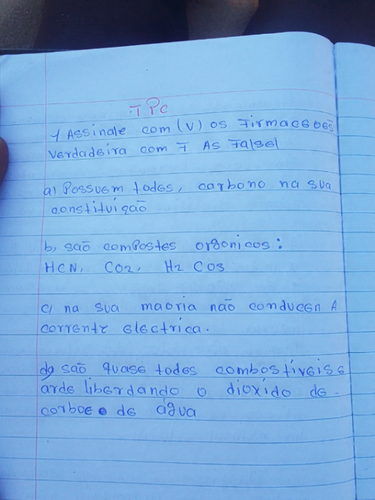 TPC
1) Assinale com (V) os Firmacões
Verdadeira com F As Falsel
a) Possuem todes, carbono na sua
constituição
b, são compostes orgonicos:
HCN, CO2, H2 COs
c, na sua maoria não conducen A
corrente electrica.
d) são quase todes combostíveis e
árde liberdando o dioxído de
corboe o de água